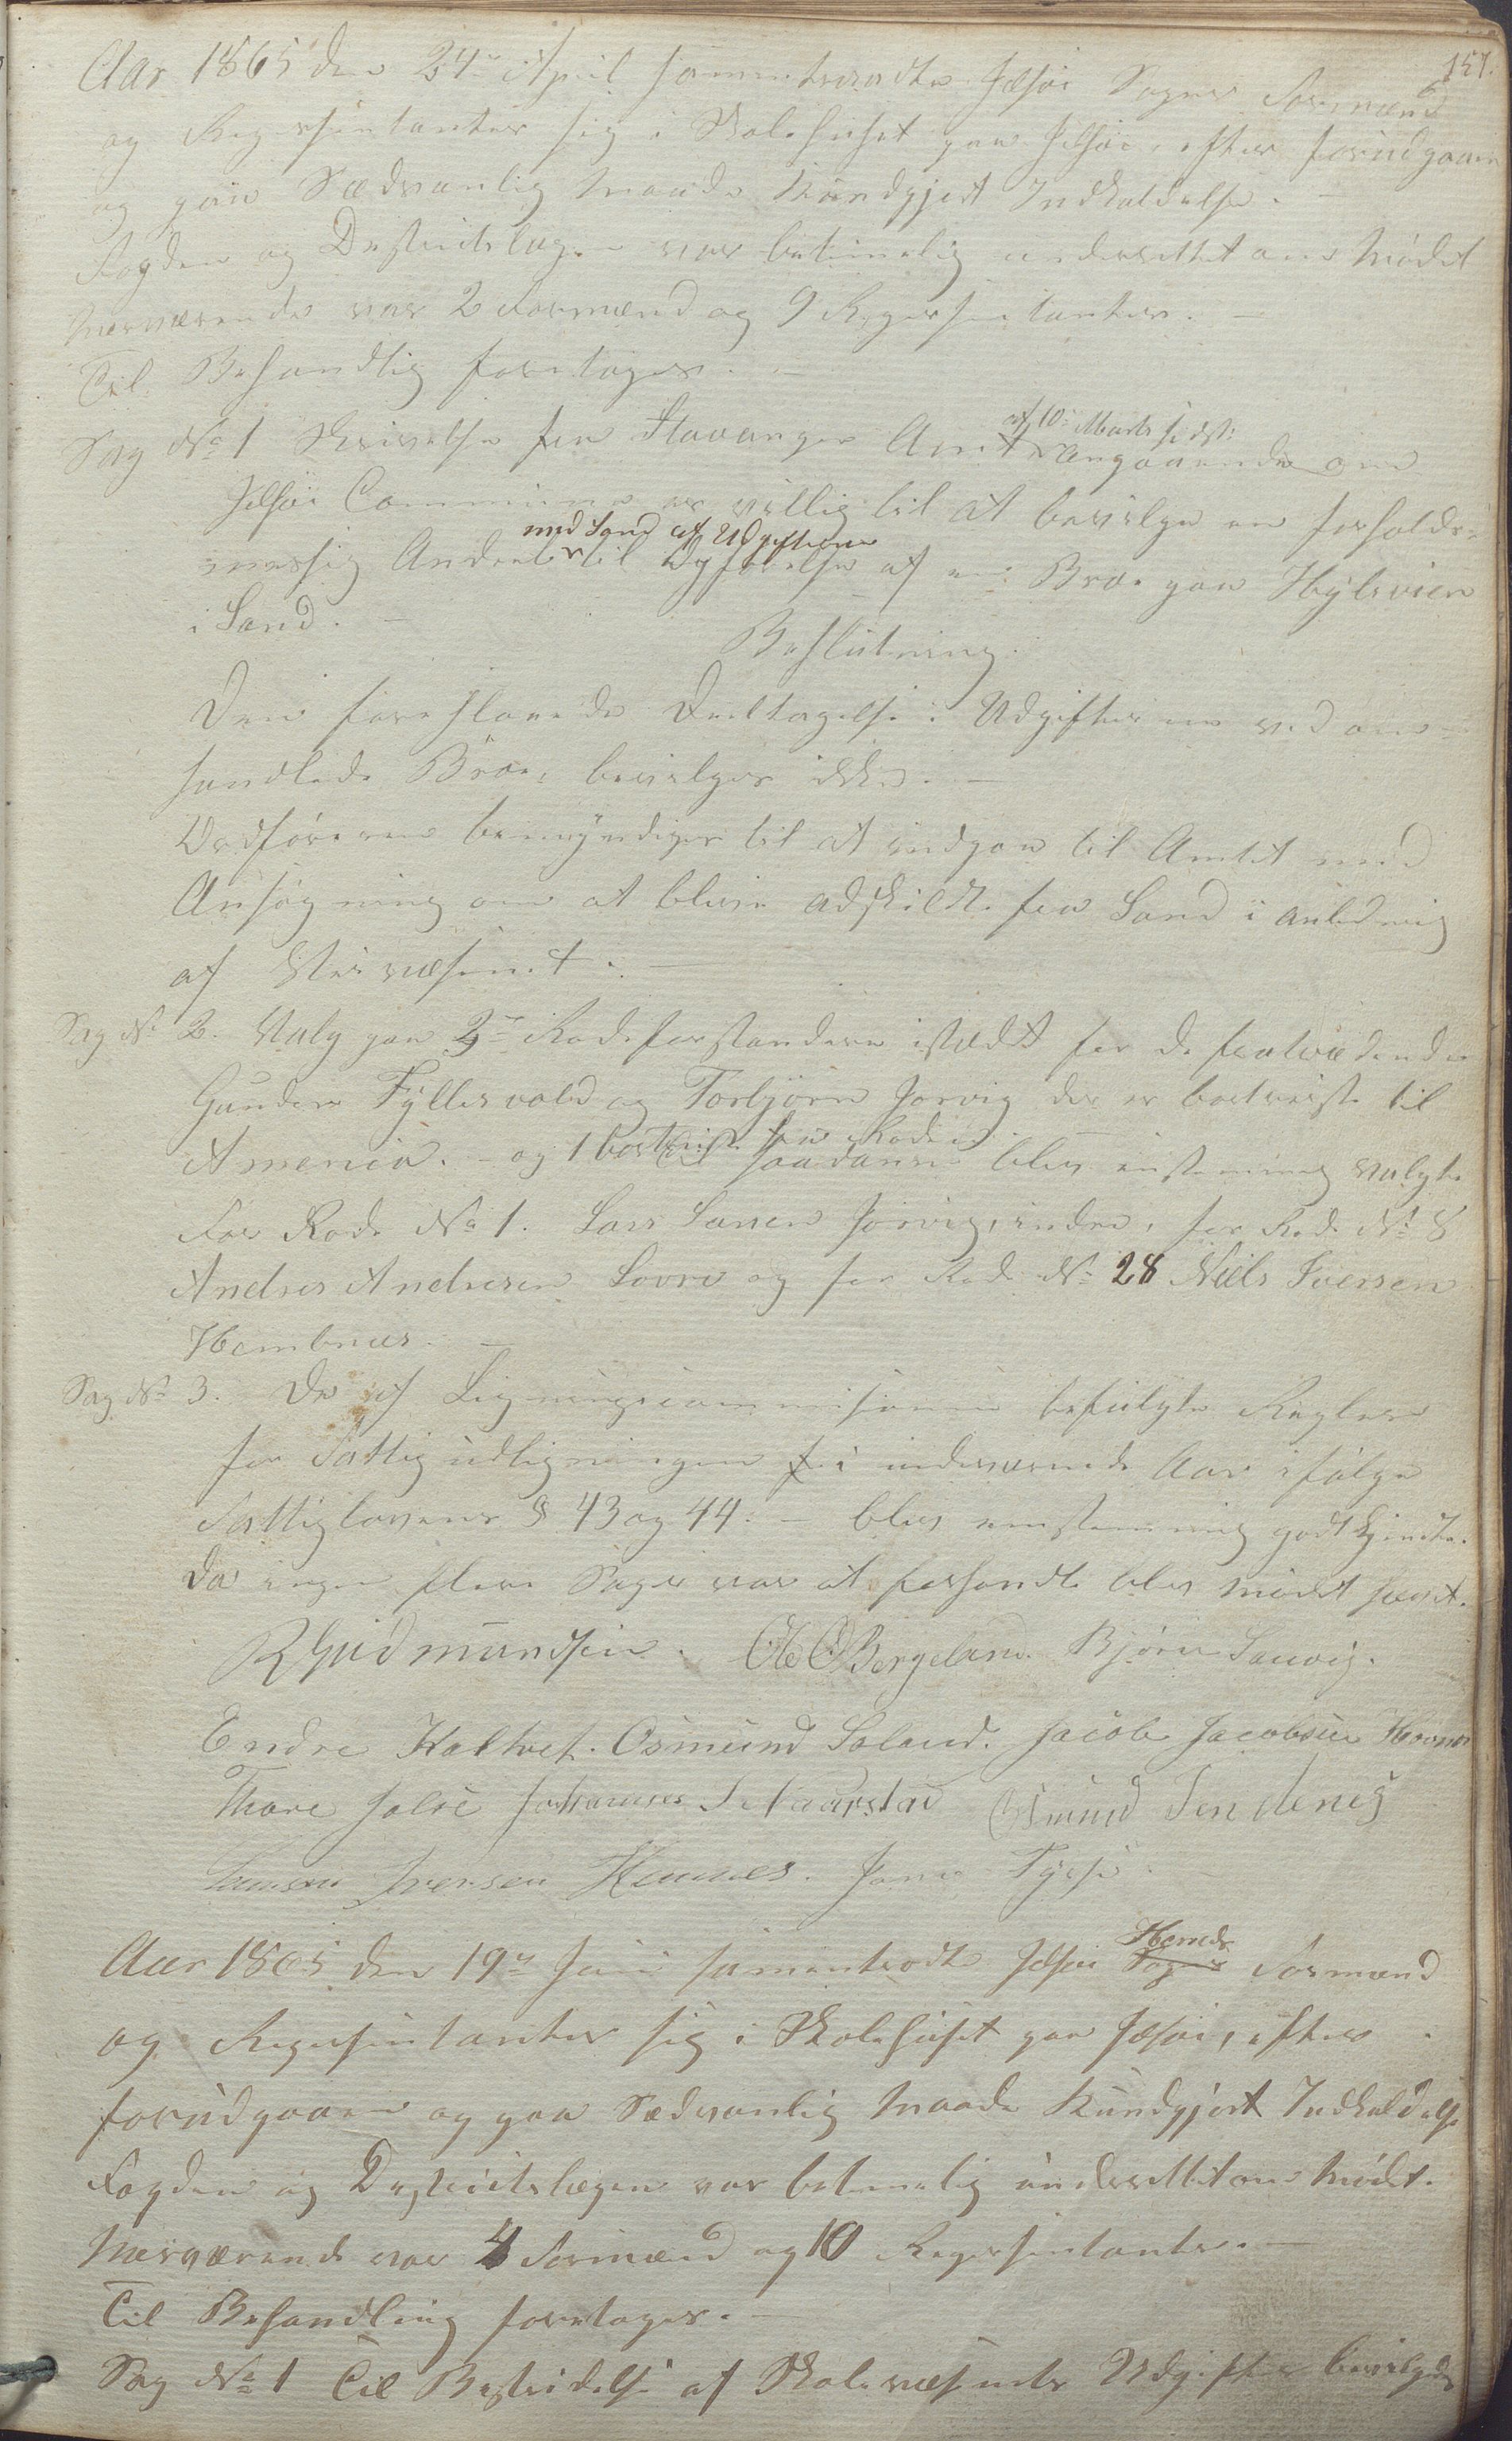 157.
Aar 1865 den 24de April sammentraadte Jelsøe Sogns Formænd
og Repersentanter sig i Skolehuset paa Jelsøe, efter forudgaaen
og paa Sædvanlig Maade Kundgjort Indkaldelse. –
Fogden og Destrictslægen var betimelig underrettet om Mødet
Nærværende var 2 Formænd og 9 Repersentanter. –
Til Behandlig foretoges. –
Sag No 1 Skrivelse fra Stavanger Amt af 10de Marts sidst: angaaende om
Jelsøe Commune er villig til at bevilge en forholds-
messig Andeel med Sand af Udgifterne til Opførelse af en Broe paa Hylsveien
i Sand. –
Beslutning.
Den foreslaaede Deeltagelse i Udgifterne ved om-
handlede Broe, bevilges ikke. –
Ordføreren bemyndiges til at indgaa til Amtet med
Ansøgning om at blive adskildt fra Sand i anledning
af Veivæsenet. –
Sag No 2. Valg paa 3de Rodeforstandere istædet for de fratrædende
Gunder Fyllesvold og Torbjørn Jorvig der er bortreiste til
Amerika. – og 1 bortreist fra Roden. – Til saadanne blev enstemmig valgt
For Rode No 1. Lars Larsen Jorvig, indre, for Rode No 8
Andres Andresen Lovre og for Rode No 28 Niels Iversen
Hembnæs. –
Sag No 3. De af Ligningscommisionen befulgte Regler
for Fattigudligningen i indeværende Aar ifølge
Fattiglovens § 43 og 44. – blev enstemmig godtkjendte.
Da ingen flere Sager var at forhandle blev Mødet hævet.
R Gudmundsen. Ole O Bergeland. Bjørn Sauvig.
Endre Kaltvet. Osmund Soland. Jacob Jacobsen
Thore Jelse Johannes Naarstad Osmund Tendenes
Iversen Hemnes. Jone
Aar 1865 den 19de Juni samentrodte Jelsøe Herreds Formænd
og Repersentanter sig i Skolehuset paa Jelsøe, efter
forudgaaen og paa Sædvanlig Maade Kundgjort Indkaldelse
Fogden og Destrictslægen var betimelig underrettet om Mødet.
Nærværende var 4 Formænd og 10 Repersentanter. –
Til Behandling foretoges. –
Sag No 1 Til Bestridelse af Skolevæsenets Udgifter bevilgedes